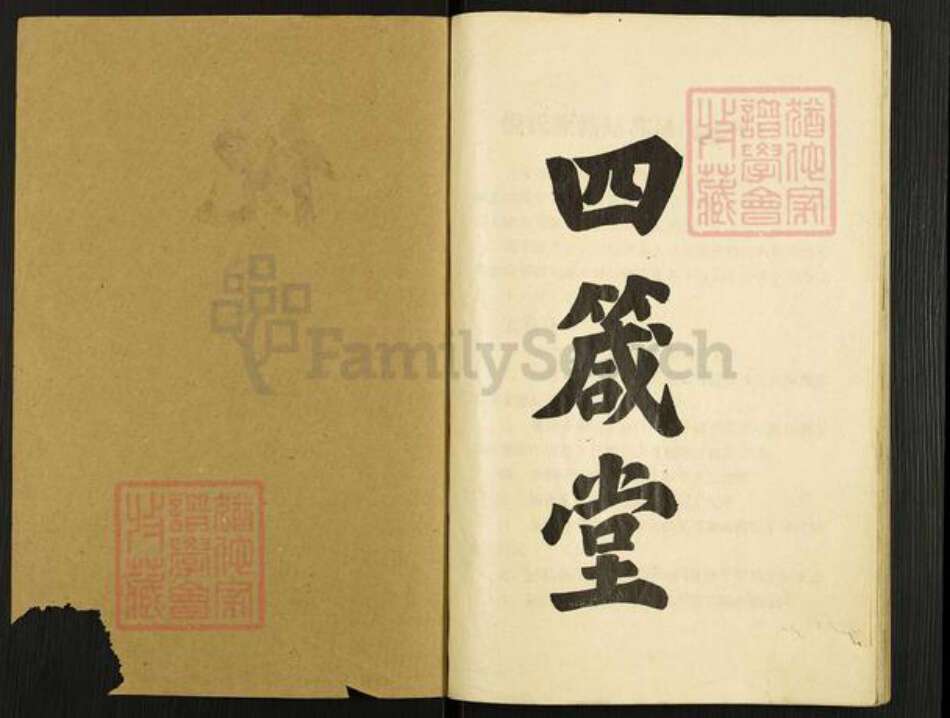 四箴堂
猶他家
譜學會
收藏
猶他家
譜學會
收藏
FamilySearch